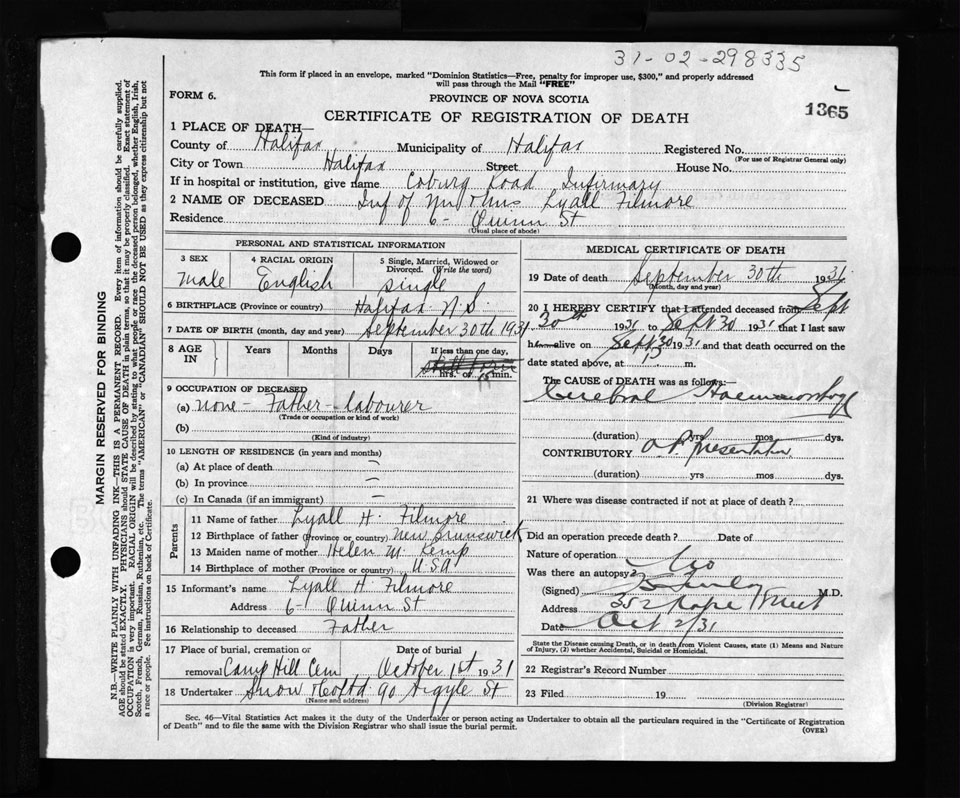 31-02-298335
This form if placed in an envelope, marked "Dominion Statistics—Free, penalty for improper use, $300," and properly addressed
will pass through the Mail "FREE"
FORM 6.
PROVINCE OF NOVA SCOTIA
1365
CERTIFICATE OF REGISTRATION OF DEATH
1 PLACE OF DEATH—
County of Halifax Municipality of Halifax Registered No.
(For use of Registrar General only)
City or Town Halifax Street House No.
If in hospital or institution, give name Coburg Road Infirmary
2 NAME OF DECEASED Inf of Mr Mrs Lyall Filmore
Residence 6- Quinn St
(Usual place of abode)
PERSONAL AND STATISTICAL INFORMATION
3 SEX 4 RACIAL ORIGIN 5 Single, Married, Widowed or
Divorced. (Write the word)
male English single
6 BIRTHPLACE (Province or country) Halifax N.S.
7 DATE OF BIRTH (month, day and year) September 30th 1931
8 AGE IN Years Months Days If less than one day,
still born
hrs. or 15 min.
9 OCCUPATION OF DECEASED
(a) none - Father - labourer
(Trade or occupation or kind of work)
(b)
(Kind of industry)
10 LENGTH OF RESIDENCE (in years and months)
(a) At place of death —
(b) In province —
(c) In Canada (if an immigrant) —
Parents
11 Name of father Lyall H. Filmore
12 Birthplace of father (Province or country) New Brunswick
13 Maiden name of mother Helen M. Kemp
14 Birthplace of mother (Province or country) USA
15 Informant's name Lyall H Filmore
Address 6- Quinn St
16 Relationship to deceased Father
17 Place of burial, cremation or Date of burial
removal Camp Hill Cem October 1st 1931
18 Undertaker Snow Co Ltd 90 Argyle St
(Name and address)
MEDICAL CERTIFICATE OF DEATH
19 Date of death September 30th 1931
(Month, day and year)
20 I HEREBY CERTIFY that I attended deceased from Sept
30th 1931 to Sept 30 1931 that I last saw
h alive on Sept 30 1931 and that death occurred on the
date stated above, at m.
The CAUSE of DEATH was as follows:—
Cerebral Haemorrhage
(duration) yrs mos dys.
CONTRIBUTORY O.P. Presentation
(duration) yrs mos dys.
21 Where was disease contracted if not at place of death?
Did an operation precede death? Date of
Nature of operation
Was there an autopsy? No
(Signed) M.D.
Address 352 Street
Date Oct 2/31
State the Disease causing Death, or in death from Violent Causes, state (1) Means and Nature
of Injury, (2) whether Accidental, Suicidal or Homicidal.
22 Registrar's Record Number
23 Filed 19
(Division Registrar)
Sec. 46—Vital Statistics Act makes it the duty of the Undertaker or person acting as Undertaker to obtain all the particulars required in the "Certificate of Registration
of Death" and to file the same with the Division Registrar who shall issue the burial permit.
(OVER)
MARGIN RESERVED FOR BINDING
N.B.—WRITE PLAINLY WITH UNFADING INK—THIS IS A PERMANENT RECORD. Every item of information should be carefully supplied.
AGE should be stated EXACTLY. PHYSICIANS should STATE CAUSE OF DEATH in plain terms so that it may be properly classified. Exact statement of
OCCUPATION is very important. RACIAL ORIGIN will be described by stating to what people or race the deceased person belonged, whether English, Irish,
Scotch, French, German, Russian, Ruthenian, etc. The terms "AMERICAN" or "CANADIAN" SHOULD NOT BE USED as they express citizenship but not
a race or people. See instructions on back of Certificate.